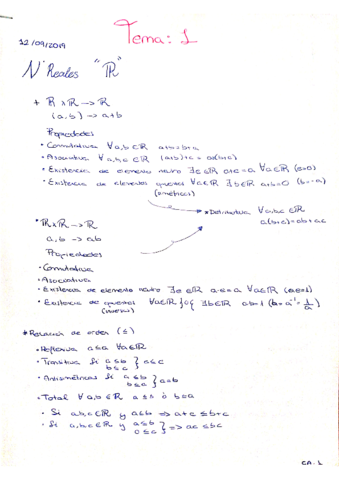 12/09/2019
Tema: 1
Nº Reales "ℝ"
+ ℝ x ℝ -> ℝ
(a,b) -> a+b
Propiedades
• Conmutativa ∀a,b∈ℝ a+b=b+a
• Asociativa ∀a,b,c∈ℝ (a+b)+c = a+(b+c)
• Existencia de elemento neutro ∃e∈ℝ a+e=a ∀a∈ℝ (e=0)
• Existencia de elementos opuestos ∀a∈ℝ ∃b∈ℝ a+b=0 (b=-a)
(simétricos)
* Distributiva ∀a,b,c∈ℝ
a(b+c)=ab+ac
• ℝxℝ -> ℝ
a,b -> ab
Propiedades
• Conmutativa
• Asociativa
• Existencia de elemento neutro ∃e∈ℝ a·e=a ∀a∈ℝ (e=1)
• Existencia de opuestos ∀a∈ℝ\{0} ∃b∈ℝ ab=1 (b=a⁻¹=1/a)
(inverso)
* Relación de orden (≤)
• Reflexiva a≤a ∀a∈ℝ
• Transitiva Si a≤b b≤c } a≤c
• Antisimétrica Si a≤b b≤a } a=b
• Total ∀a,b∈ℝ a≤b ó b≤a
• Si a,b,c∈ℝ y a≤b => a+c≤b+c
• Si a,b,c∈ℝ y a≤b 0≤c } => ac≤bc
CA-1